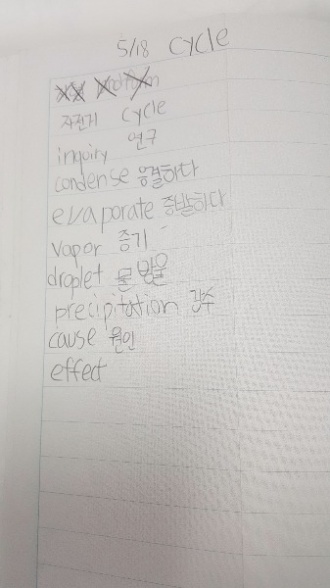 5/18 cycle
자전거 cycle
inquiry 연구
condense 응결하다
evaporate 증발하다
vapor 증기
droplet 물방울
precipitation 강수
cause 원인
effect